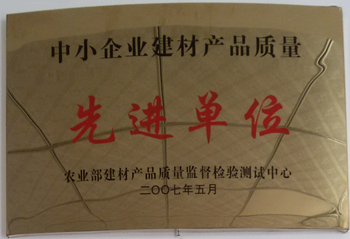 中小企业建材产品质量
先进单位
农业部建材产品质量监督检验测试中心
二〇〇七年五月